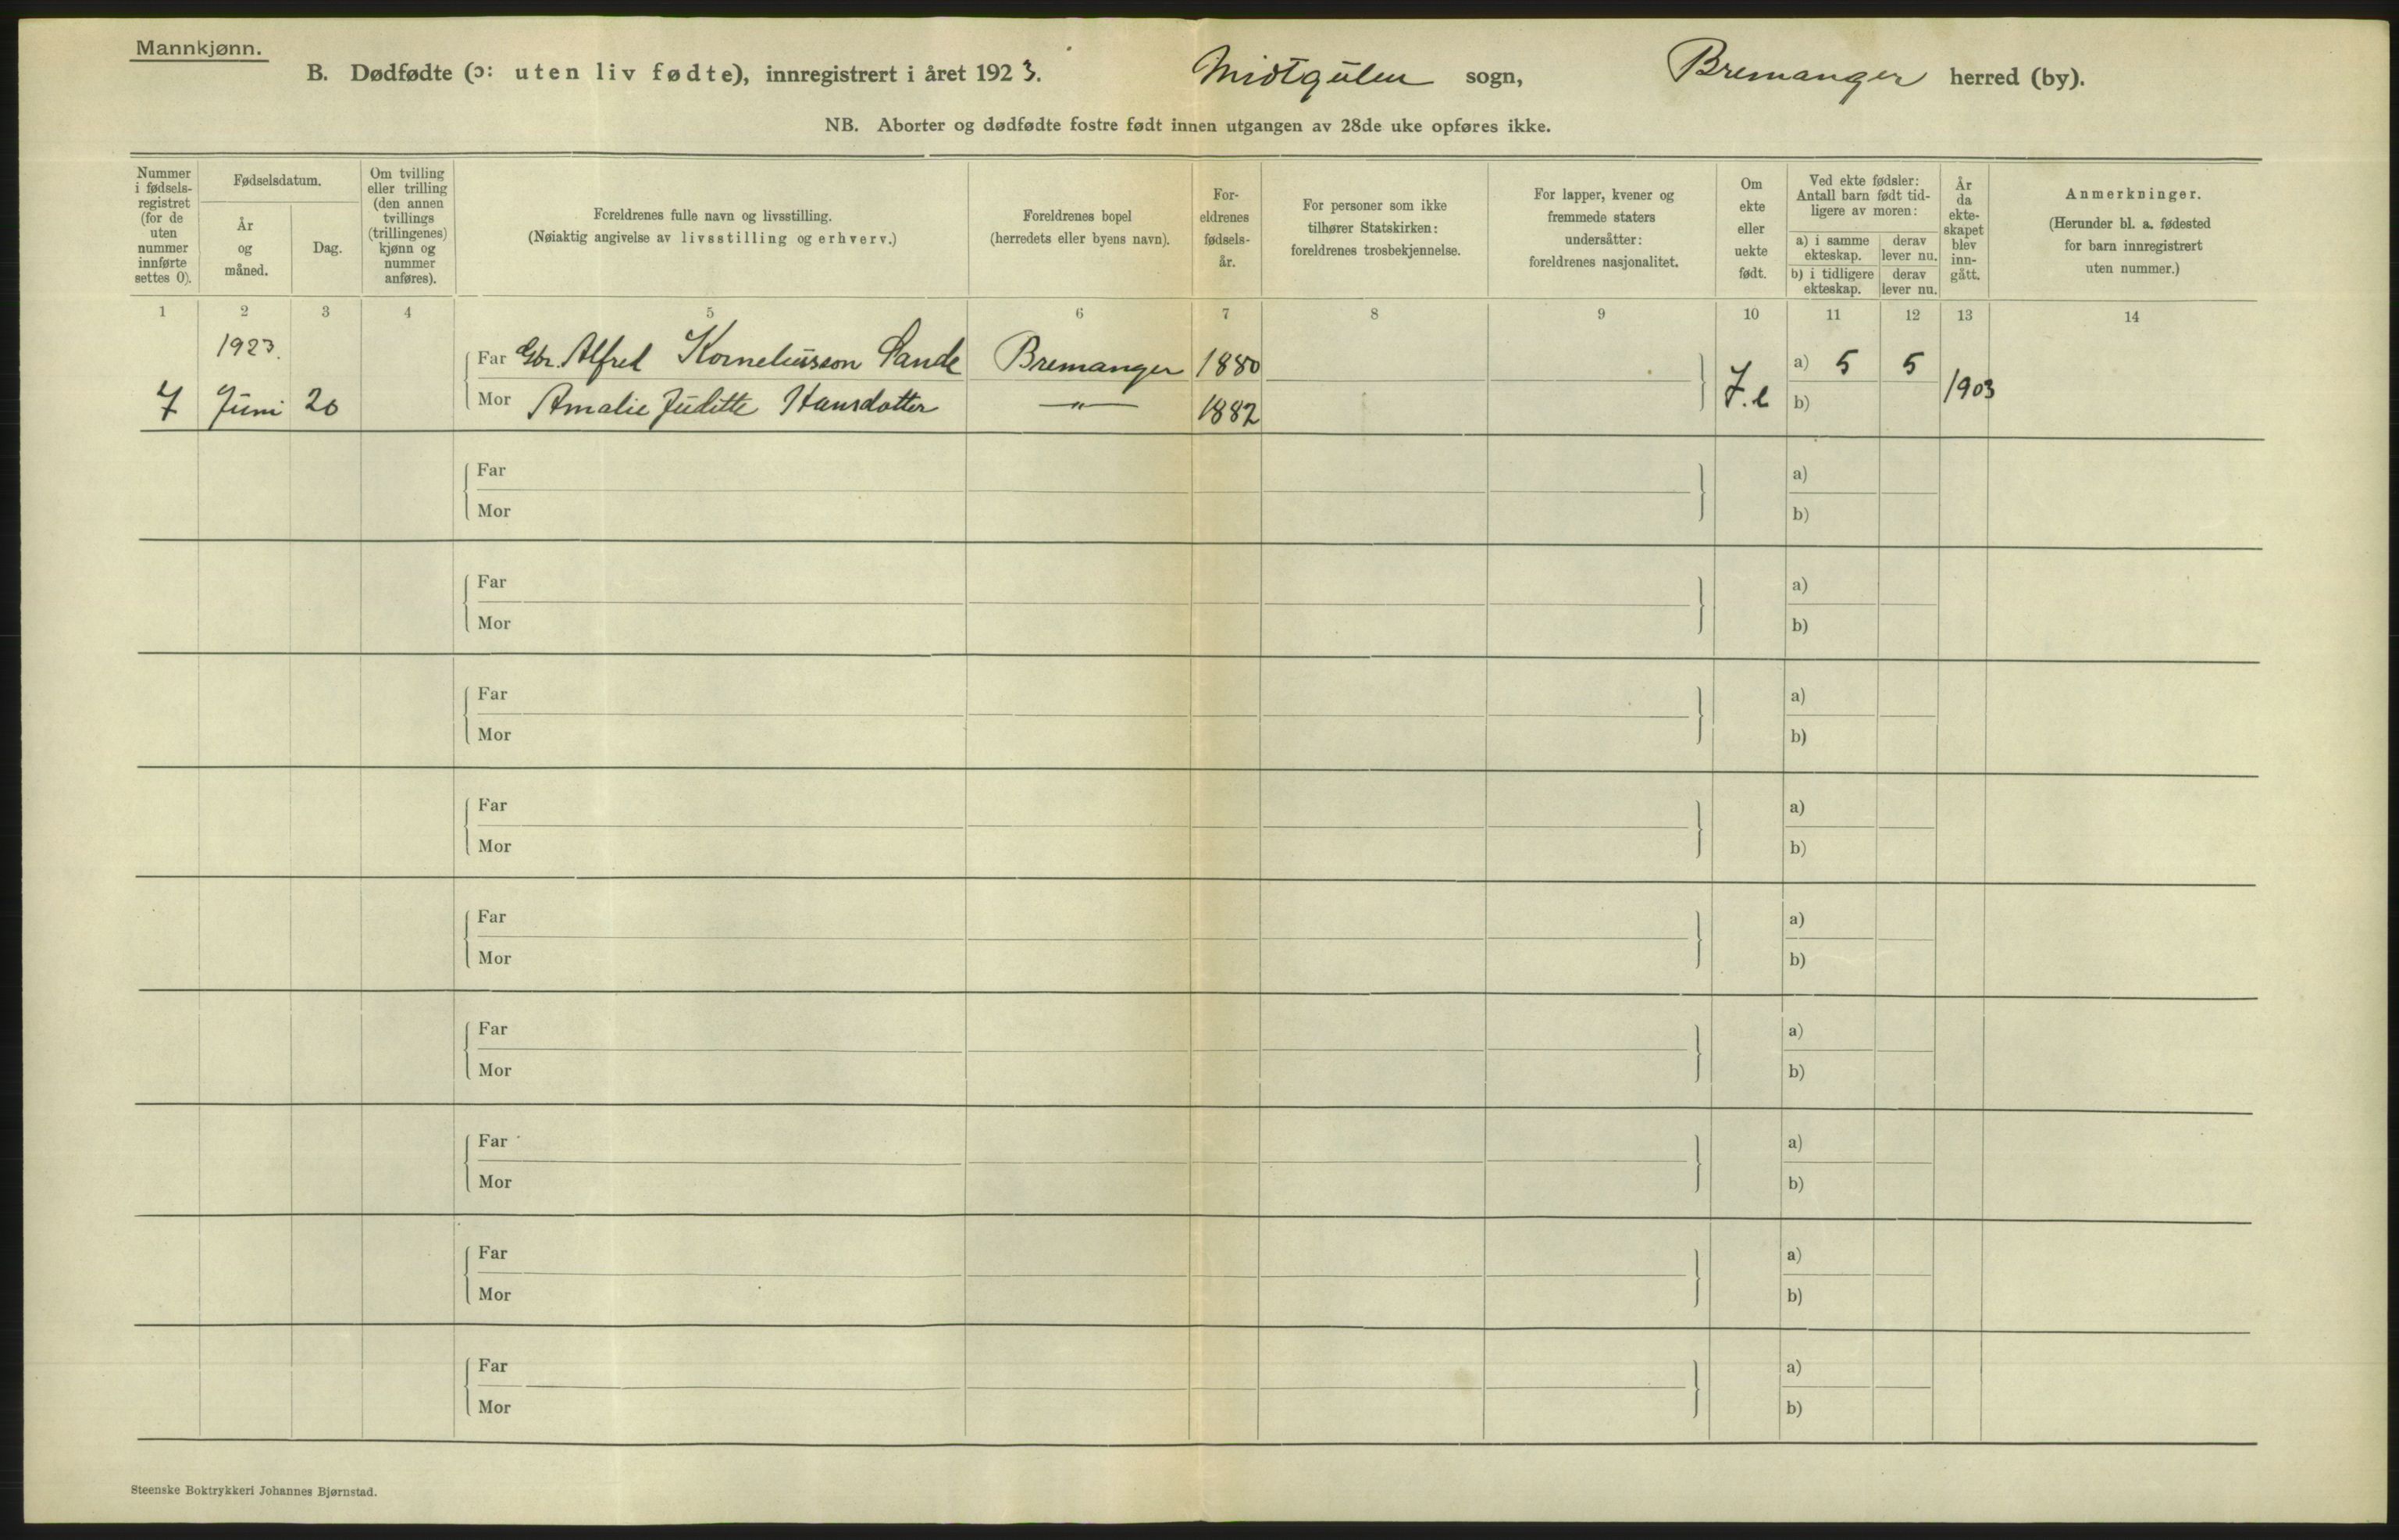 Mannkjønn.
B. Dødfødte (ɔ: uten liv fødte), innregistrert i året 1923. Midtgulen sogn, Bremanger herred (by).
NB. Aborter og dødfødte fostre født innen utgangen av 28de uke opføres ikke.
Nummer i fødsels- registret (for de uten nummer innførte settes 0).
Fødselsdatum.
År og måned.
Dag.
Om tvilling eller trilling (den annen tvillings (trillingenes) kjønn og nummer anføres).
Foreldrenes fulle navn og livsstilling.
(Nøiaktig angivelse av livsstilling og erhverv.)
Foreldrenes bopel
(herredets eller byens navn).
For- eldrenes fødsels- år.
For personer som ikke tilhører Statskirken: foreldrenes trosbekjennelse.
For lapper, kvener og fremmede staters undersåtter: foreldrenes nasjonalitet.
Om ekte eller uekte født.
Ved ekte fødsler: Antall barn født tid- ligere av moren:
a) i samme ekteskap.
derav lever nu.
b) i tidligere ekteskap.
derav lever nu.
År da ekte- skapet blev inn- gått.
Anmerkninger.
(Herunder bl. a. fødested for barn innregistrert uten nummer.)
1 2 3 4 5 6 7 8 9 10 11 12 13 14
1923.
Far Gbr. Alfred Korneliusson Sande Bremanger 1880 a) 5 5
7 Juni 20 Mor Amalie Juditte Hansdotter —"— 1882 b) 1903
Far a)
Mor b)
Far a)
Mor b)
Far a)
Mor b)
Far a)
Mor b)
Far a)
Mor b)
Far a)
Mor b)
Far a)
Mor b)
Far a)
Mor b)
Far a)
Mor b)
Steenske Boktrykkeri Johannes Bjørnstad.